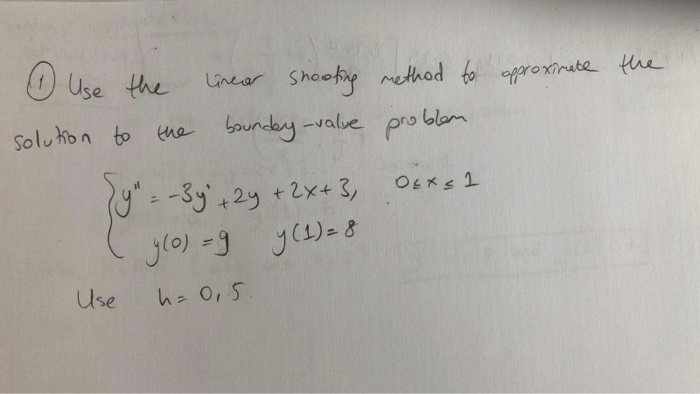 ① Use the linear shooting method to approximate the
solution to the boundey-value problem
y" = -3y' + 2y + 2x + 3, 0 ≤ x ≤ 1
y(0) = 9 y(1) = 8
Use h = 0,5